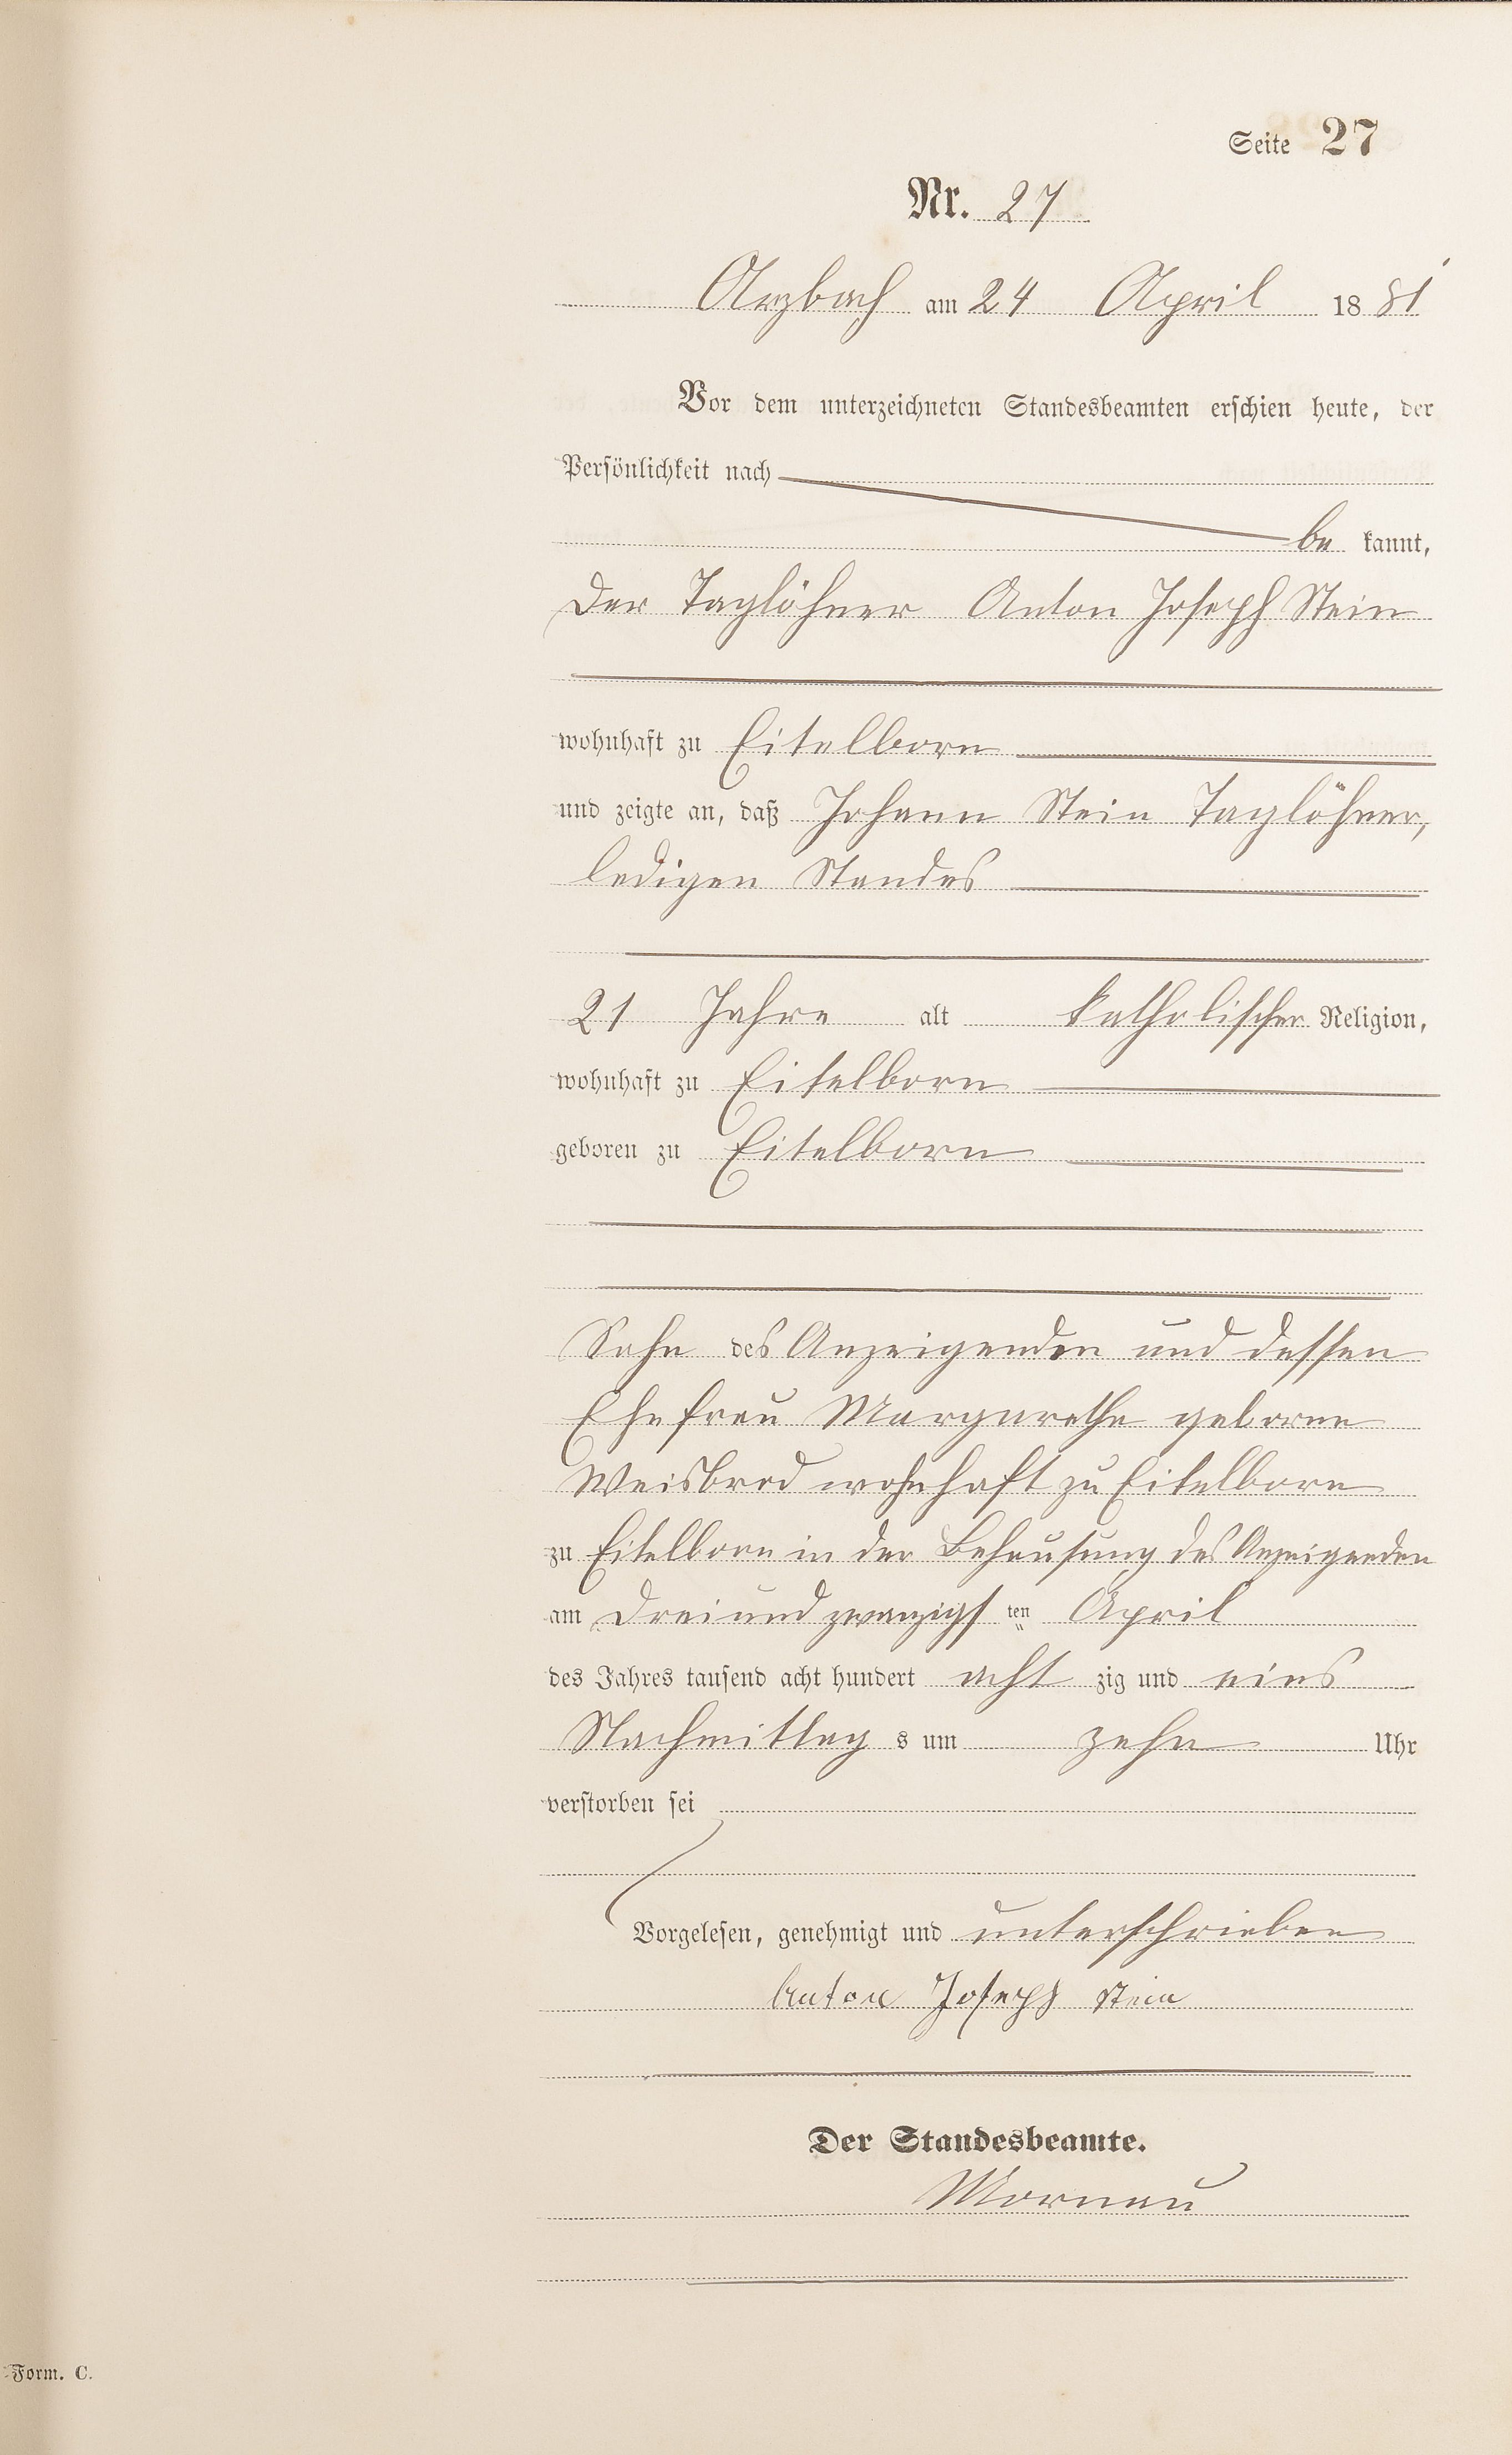 Seite 27
Nr. 27
Arzbach am 24 April 1881
Vor dem unterzeichneten Standesbeamten erschien heute, der
Persönlichkeit nach
be kannt,
der Taglöhner Anton Joseph Stein
wohnhaft zu Eitelborn
und zeigte an, daß Johann Stein Taglöhner,
ledigen Standes
21 Jahre alt katholischer Religion,
wohnhaft zu Eitelborn
geboren zu Eitelborn
Sohn des Anzeigenden und dessen
Ehefrau Margarethe geborne
Weisbrod wohnhaft zu Eitelborn
zu Eitelborn in der Behausung des Anzeigenden
am dreiundzwanzigs ten April
des Jahres tausend acht hundert acht zig und eins
Nachmittag s um zehn Uhr
verstorben sei
Vorgelesen, genehmigt und unterschrieben
Anton Joseph Stein
Der Standesbeamte.
Mornau
Form. C.